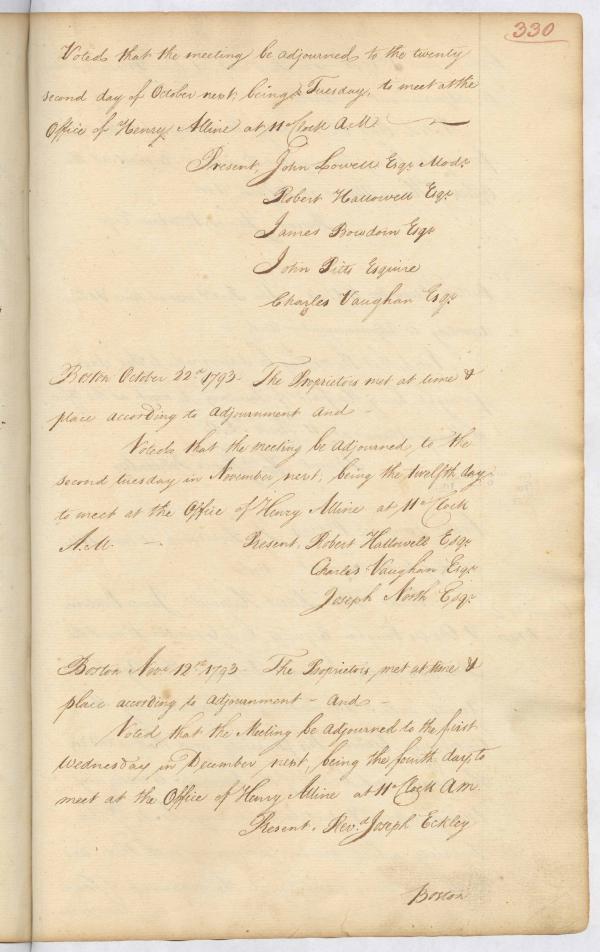 330
Voted that the meeting be adjourned to the twenty
second day of October next, being Tuesday, to meet at the
Office of Henry Alline at 11 o'Clock A.M.
Present, John Lowell Esqr. Modr.
Robert Hallowell Esqr.
James Bowdoin Esqr
John Pitts Esquire
Charles Vaughan Esqr.
Boston October 22d. 1793 - The Proprietors met at time &
place according to adjournment and -
Voted that the meeting be adjourned to the
second tuesday in November next, being the twelfth day
to meet at the Office of Henry Alline at 11 o'Clock
A.M - Present, Robert Hallowell Esqr.
Charles Vaughan Esqr.
Joseph North Esqr.
Boston Novr. 12th. 1793 - The Proprietors met at time &
place according to adjournment - and -
Voted, that the Meeting be adjourned to the first
Wednesday in December next, being the fourth day, to
meet at the Office of Henry Alline at 11 o'Clock A.M.
Present. Revd. Joseph Eckley
Boston